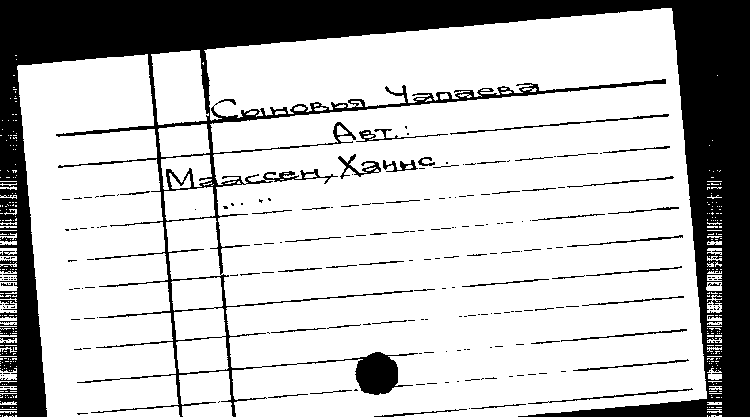 Сыновья Чапаева
Авт.:
Маассен, Ханнс.
... ..